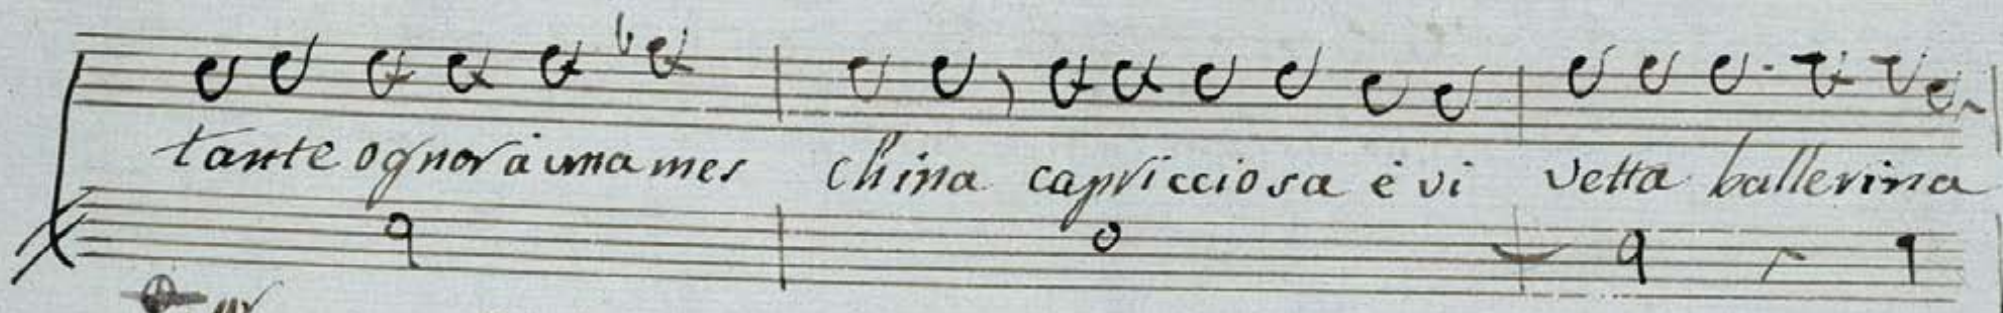 tante ognor à una mes china capricciosa è vi vetta ballerina